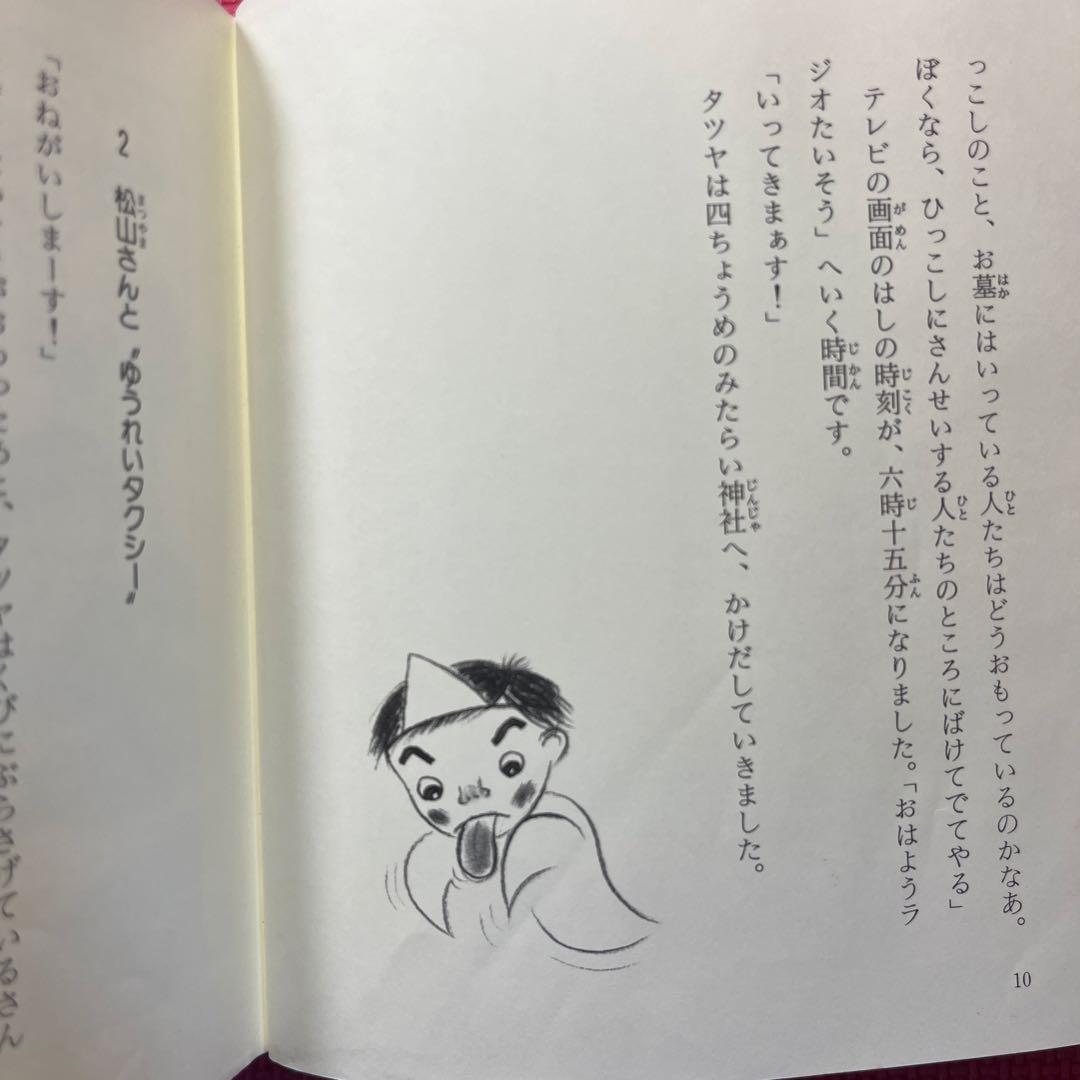 っこしのこと、お墓にはいっている人たちはどうおもっているのかなあ。
ぼくなら、ひっこしにさんせいする人たちのところにばけてでてやる」
テレビの画面のはしの時刻が、六時十五分になりました。「おはようラ
ジオたいそう」へいく時間です。
「いってきまぁす！」
タツヤは四ちょうめのみたらい神社へ、かけだしていきました。
10
2 松山さんと〝ゆうれいタクシー〟
「おねがいしまーす！」